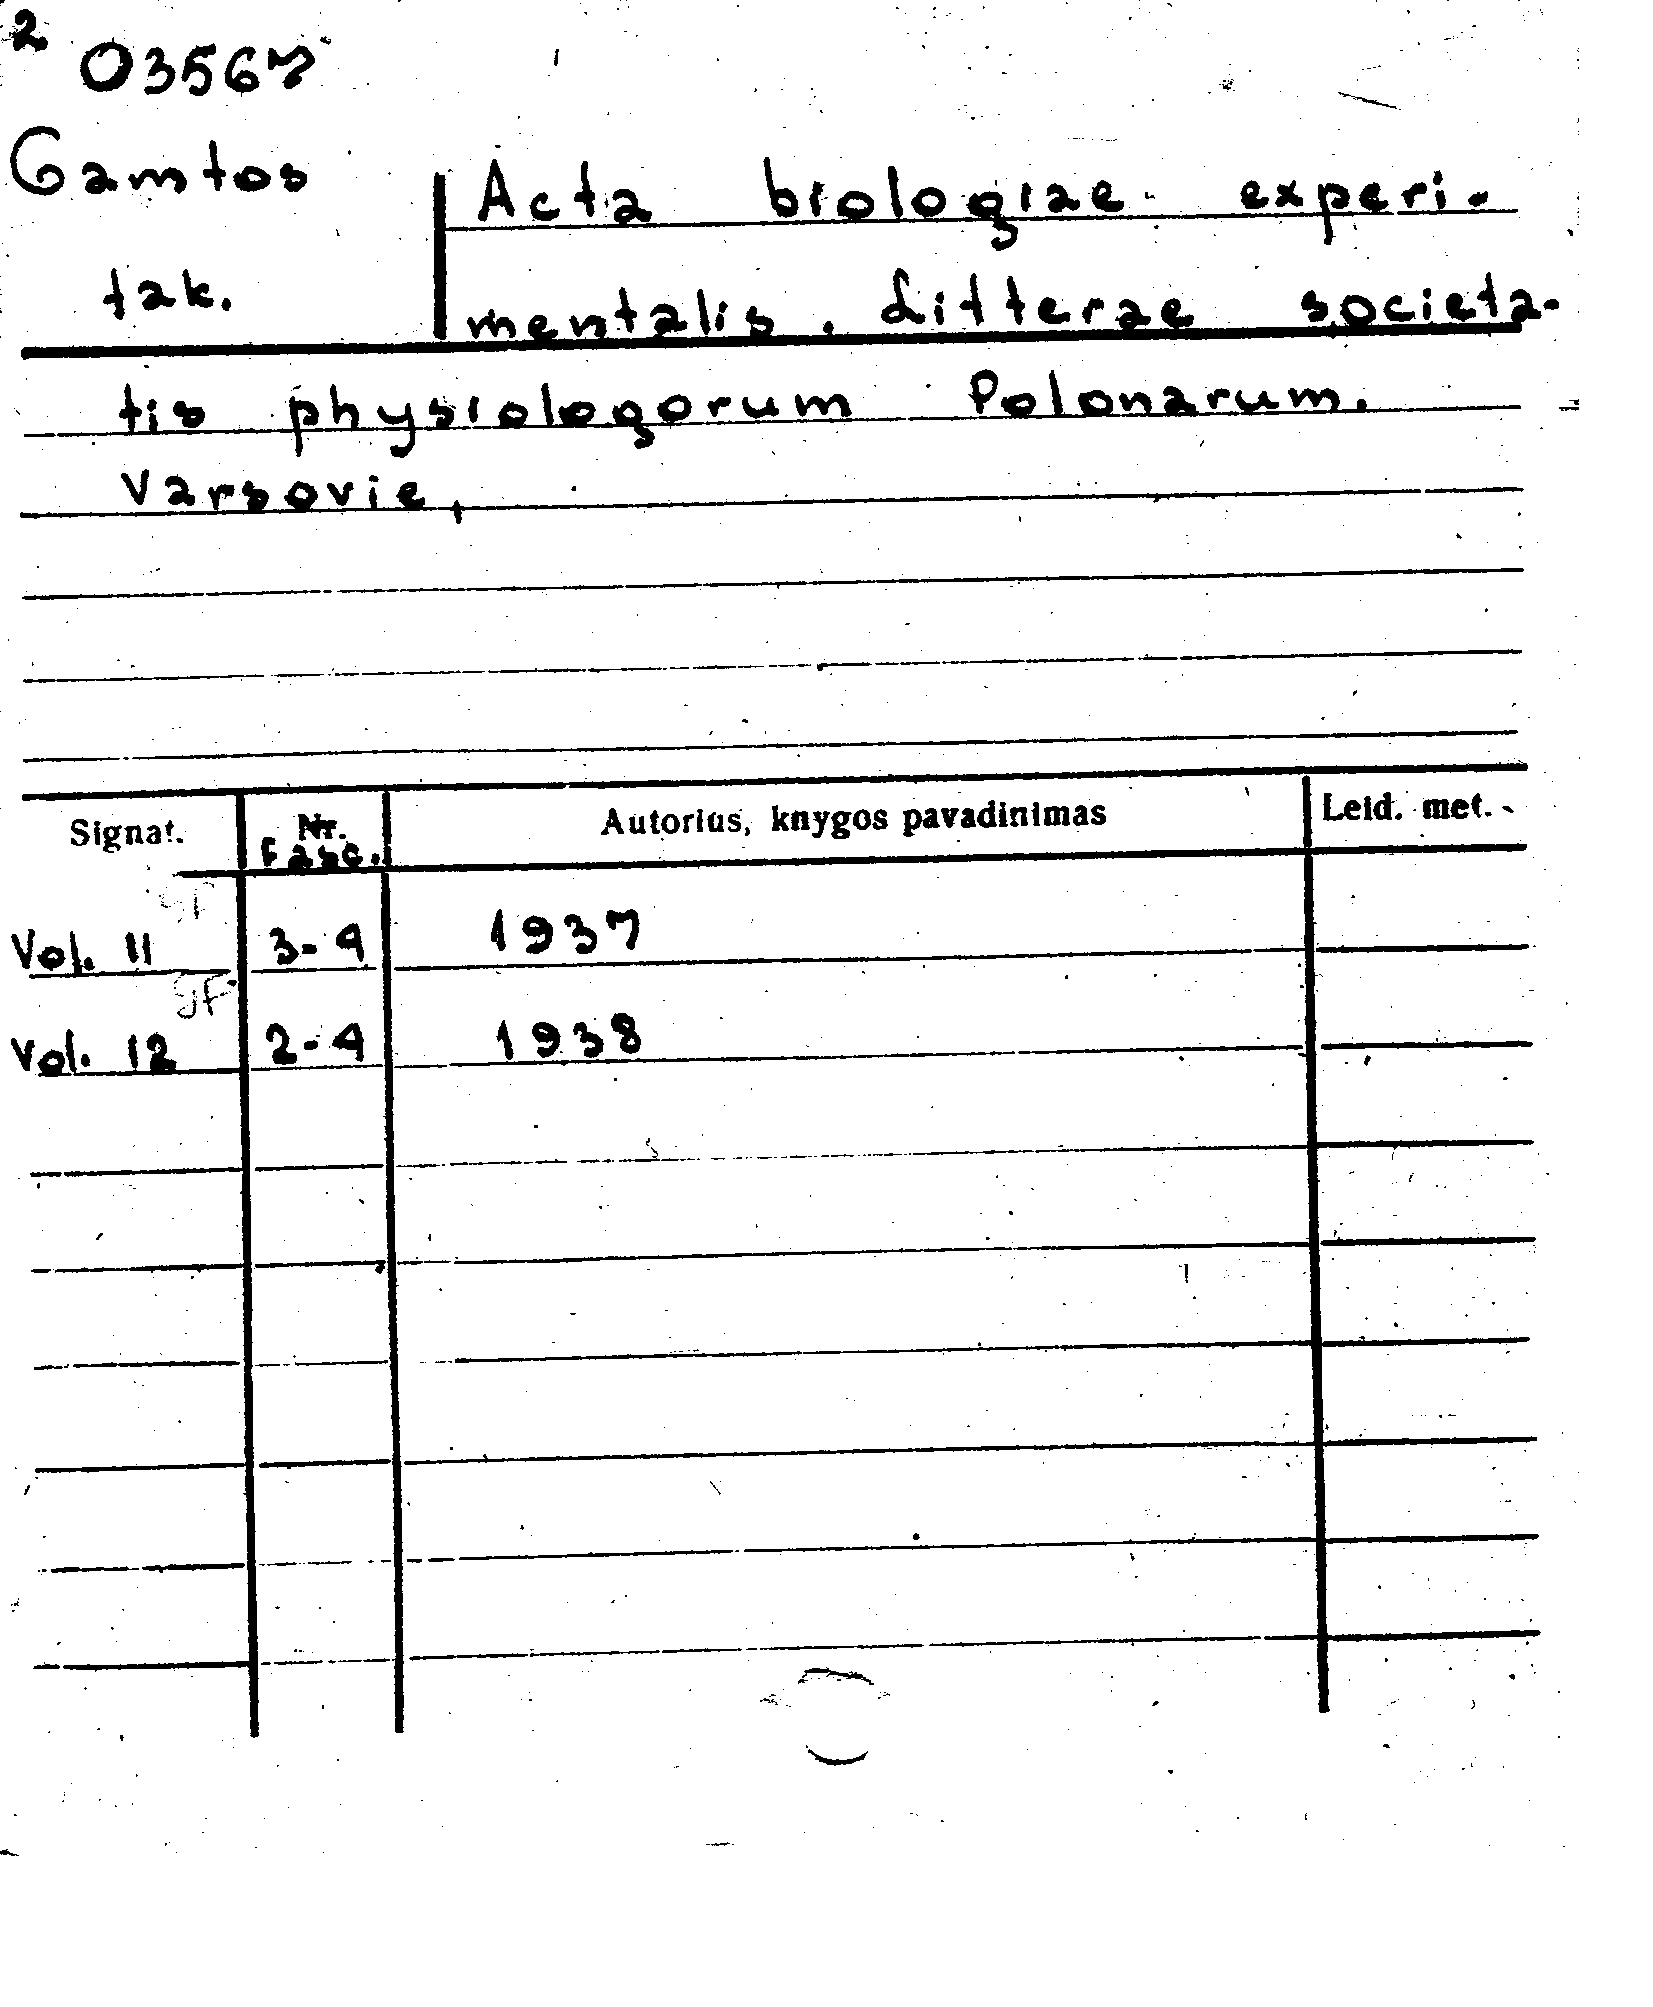 2
03567
Gamtos
tak.
Acta biologiae experi-
mentalis. Litterae societa-
tis physiologorum Polonarum.
Varsovie,
Signat. Nr. Fasc. Autorius, knygos pavadinimas Leid. met.
Vol. 11 3-4 1937
Vol. 12 2-4 1938